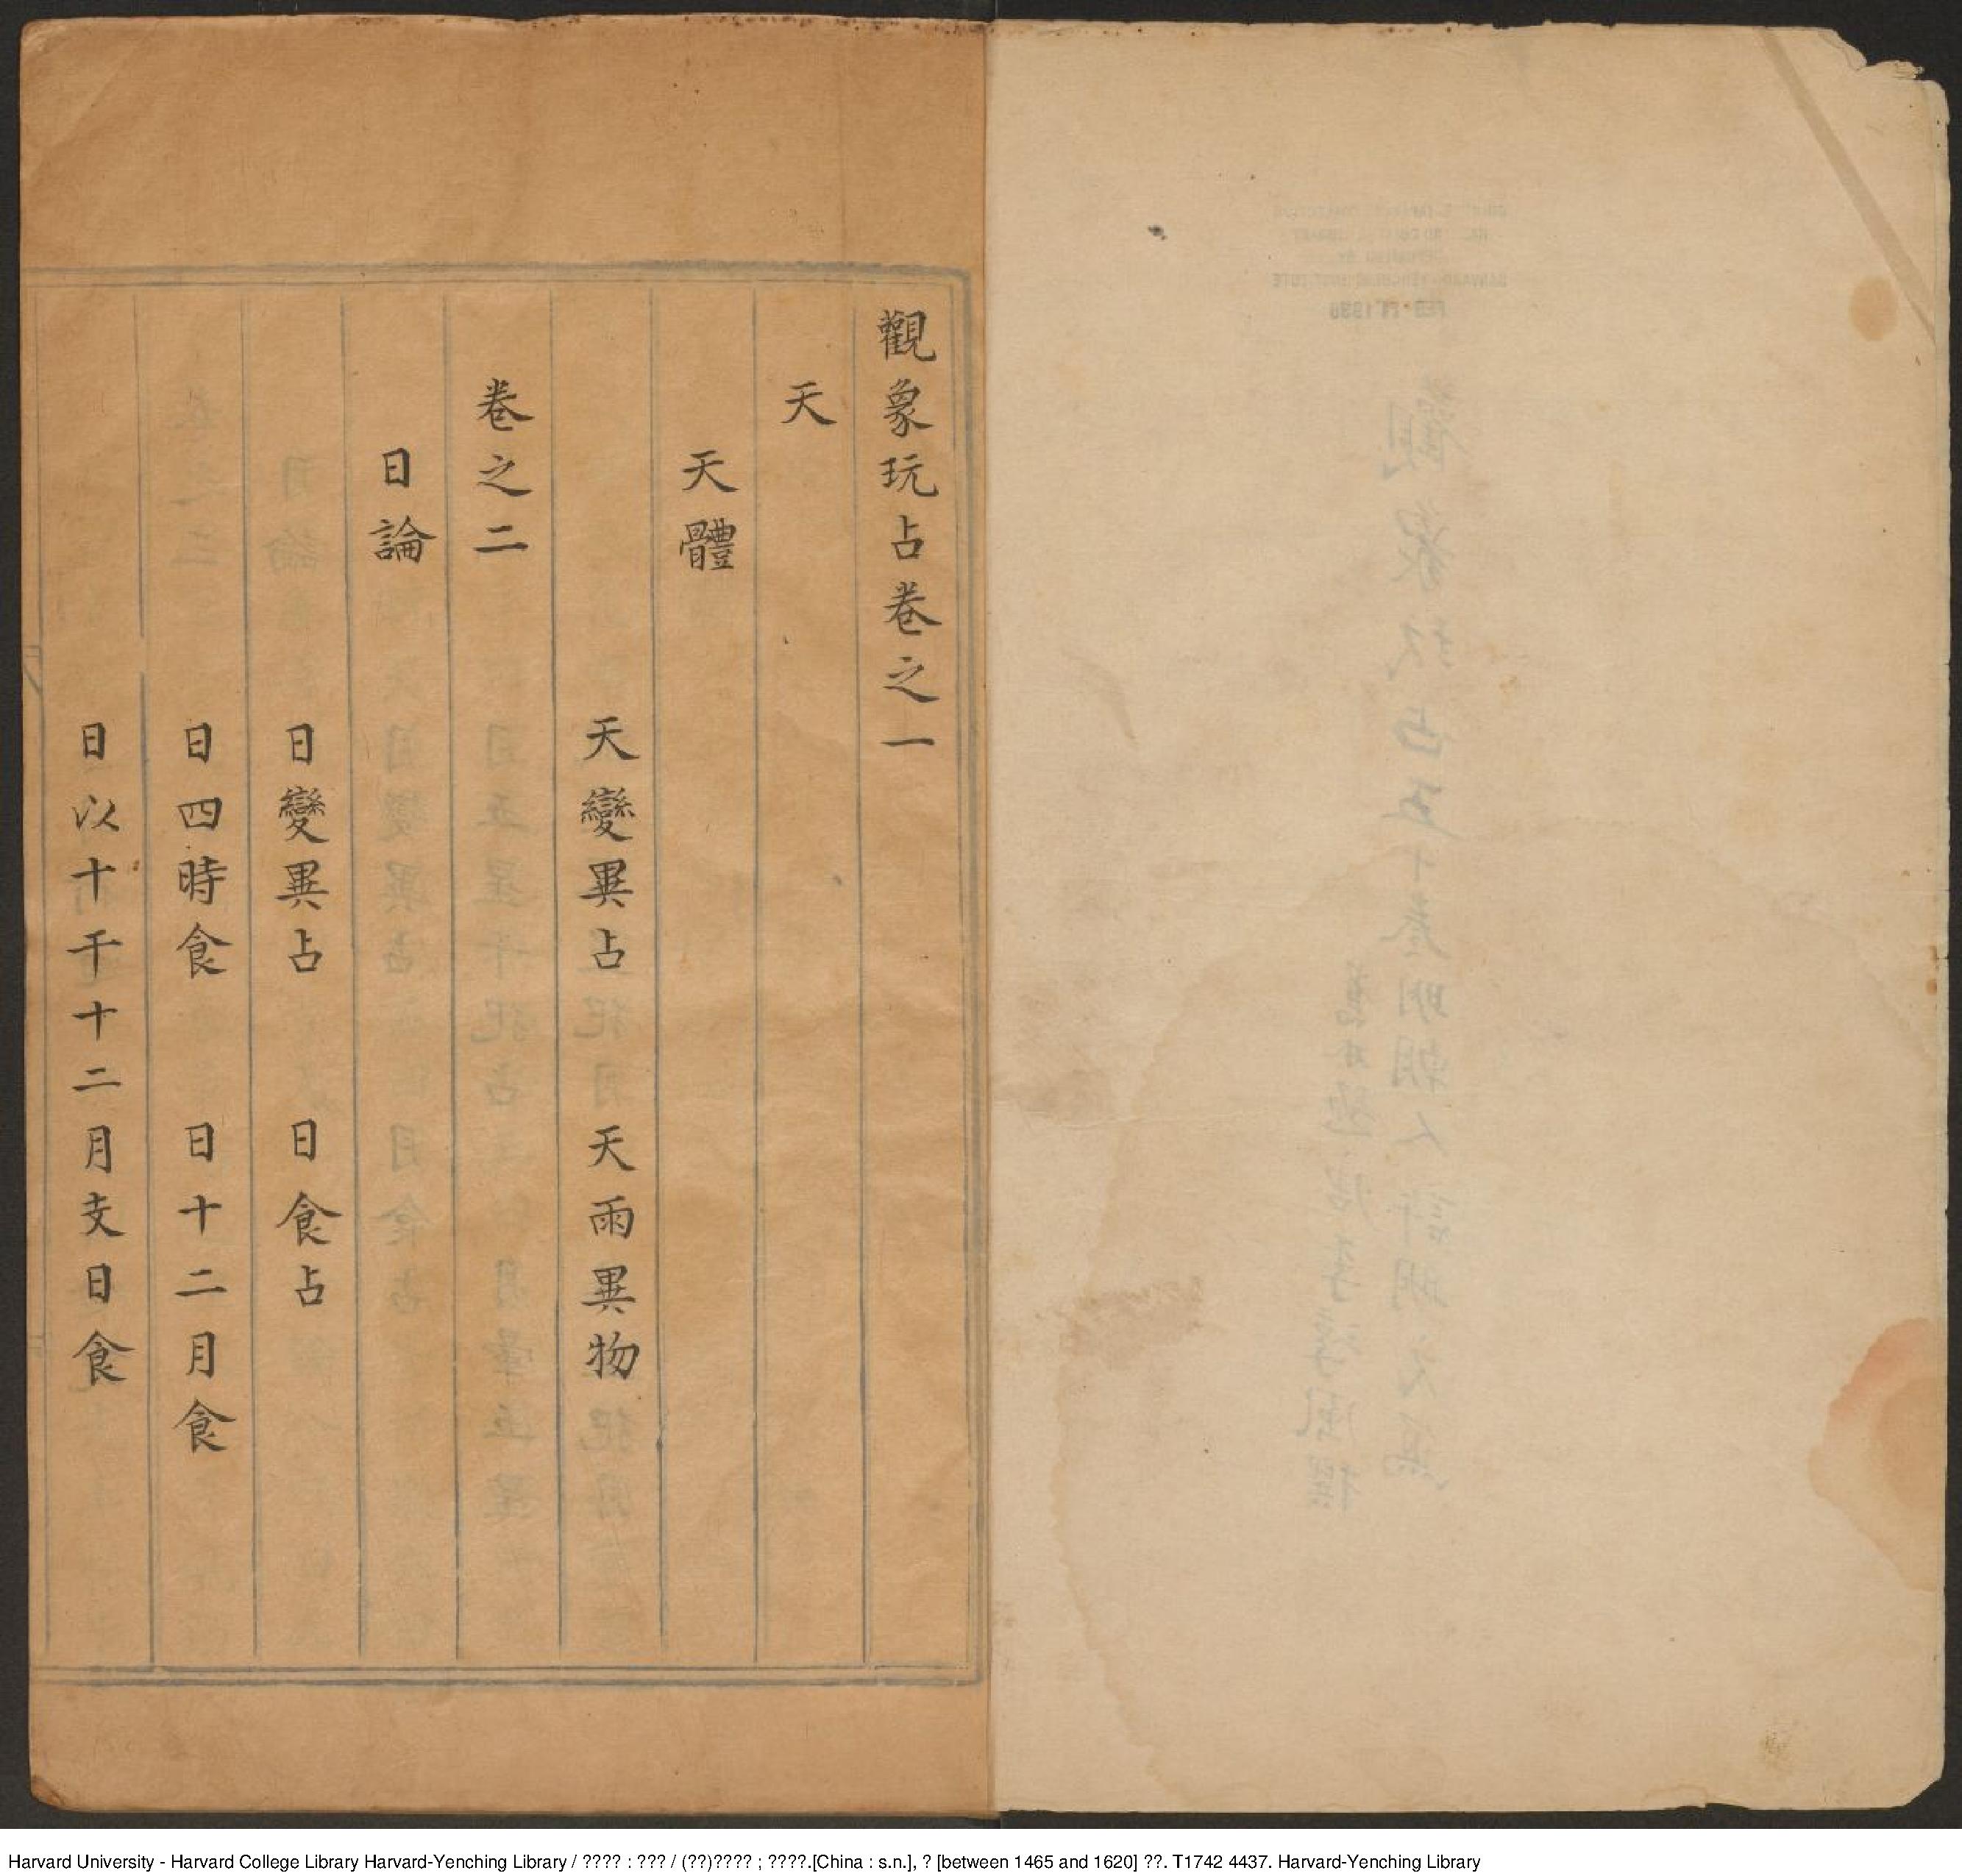 觀象玩占卷之一
天
天體
天變異占　天雨異物
卷之二
日論
日變異占　日食占
日四時食　日十二月食
日以十干十二月支日食
Harvard University - Harvard College Library Harvard-Yenching Library / ???? : ??? / (??)???? ; ????.[China : s.n.], ? [between 1465 and 1620] ??. T1742 4437. Harvard-Yenching Library